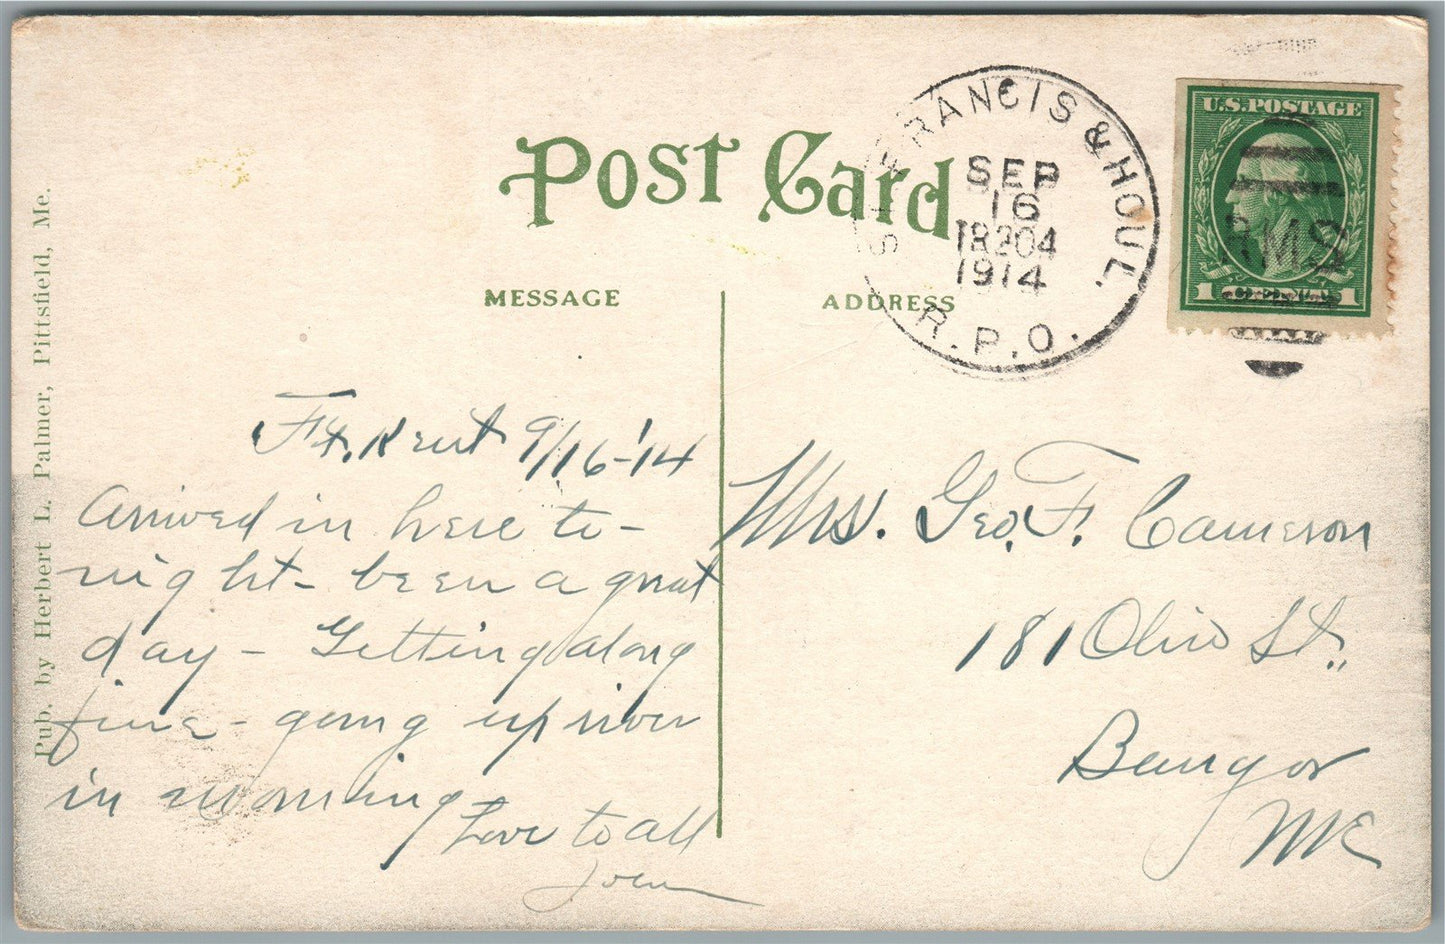 Post Card
MESSAGE
ADDRESS
ST. FRANCIS & HOUL.
SEP
16
TR 204
1914
R.P.O.
U.S. POSTAGE
RMS
1 1
Pub. by Herbert L. Palmer, Pittsfield, Me.
Ft. Kent 9/16-'14
Arrived in here to-
night - been a great
day - Getting along
fine - going up river
in morning
Love to all
Mrs. Geo. F. Cameron
181 Ohio St.,
Bangor
Me